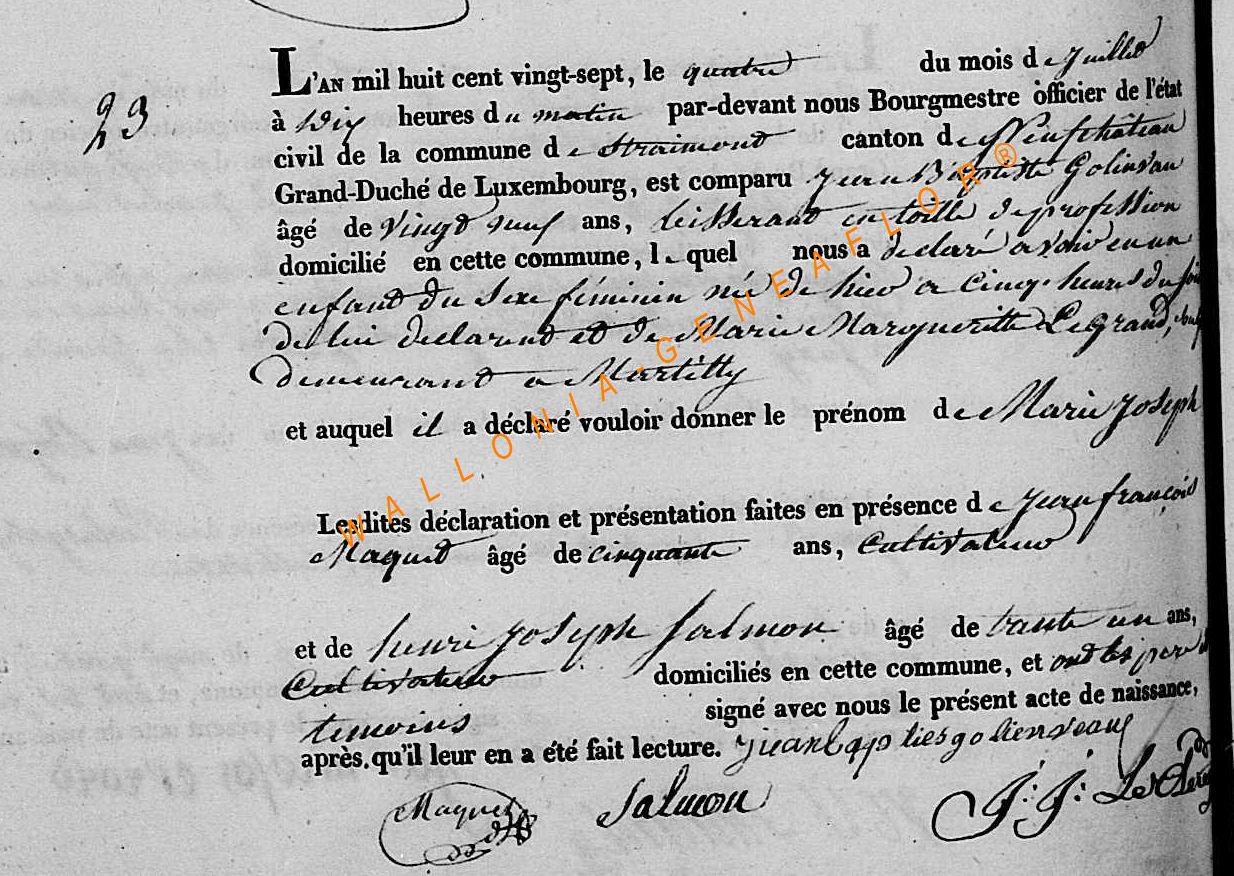 23
L'AN mil huit cent vingt-sept, le quatre du mois de Juillet
à Dix heures du matin par-devant nous Bourgmestre officier de l'état
civil de la commune de Straimont canton de Neufchâteau
Grand-Duché de Luxembourg, est comparu Jean Baptiste Golinvau
âgé de vingt neuf ans, teisserant en toille de profession
domicilié en cette commune, lequel nous a déclaré avoir eu un
enfant du sexe féminin né de hier a cinq heures du soir
de lui declarent et de Marie Margueritte Le Grand,
demeurant a Martilly
et auquel il a déclaré vouloir donner le prénom de Marie Joseph
Lesdites déclaration et présentation faites en présence de Jean françois
Maquet âgé de cinquante ans, Cultivateur
et de henri Joseph Salmon âgé de trante un ans,
Cultivateur domiciliés en cette commune, et ont les pere et
temoins signé avec nous le présent acte de naissance,
après qu'il leur en a été fait lecture. jean bap ties golienseau
Maquet Salmon J: J:
WALLONIA-GENEAFLOR®